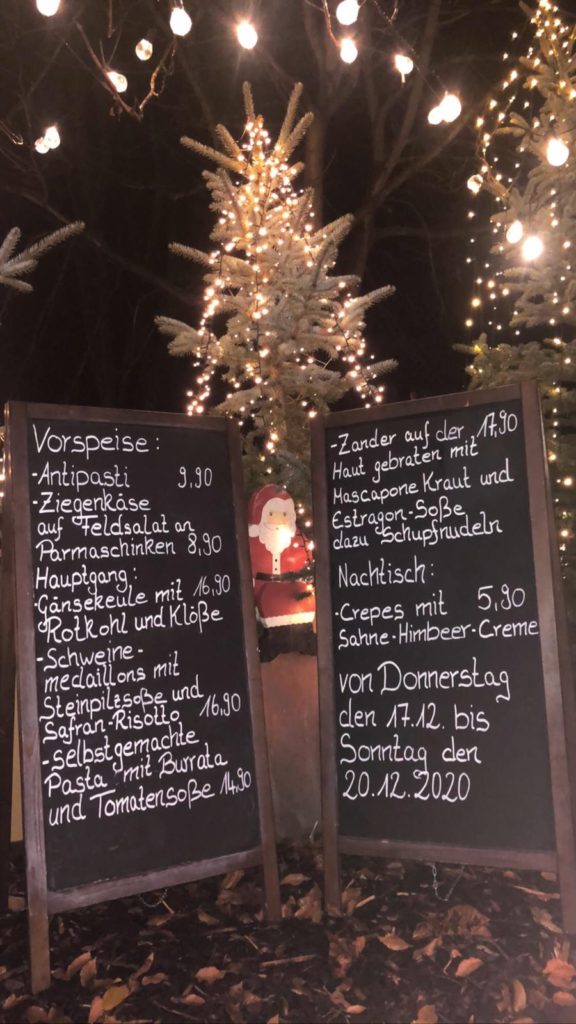 Vorspeise:
-Antipasti 9,90
-Ziegenkäse
auf Feldsalat an
Parmaschinken 8,90
Hauptgang:
-Gänsekeule mit 16,90
Rotkohl und Klöße
-Schweine-
medaillons mit
Steinpilzsoße und
Safran-Risotto 16,90
-Selbstgemachte
Pasta mit Burrata
und Tomatensoße 14,90
-Zander auf der 17,90
Haut gebraten mit
Mascapone Kraut und
Estragon-Soße
dazu Schupfnudeln
Nachtisch:
-Crepes mit 5,90
Sahne-Himbeer-Creme
von Donnerstag
den 17.12. bis
Sonntag den
20.12.2020